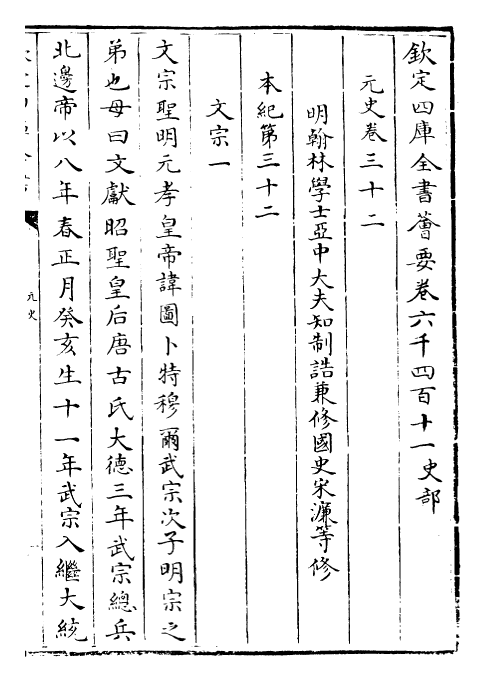 欽定四庫全書薈要卷六千四百十一史部
元史卷三十二
明翰林學士亞中大夫知制誥兼修國史宋濂等修
本紀第三十二
文宗一
文宗聖明元孝皇帝諱圖卜特穆爾武宗次子明宗之
弟也母曰文獻昭聖皇后唐古氏大德三年武宗總兵
北邊帝以八年春正月癸亥生十一年武宗入繼大統
元史